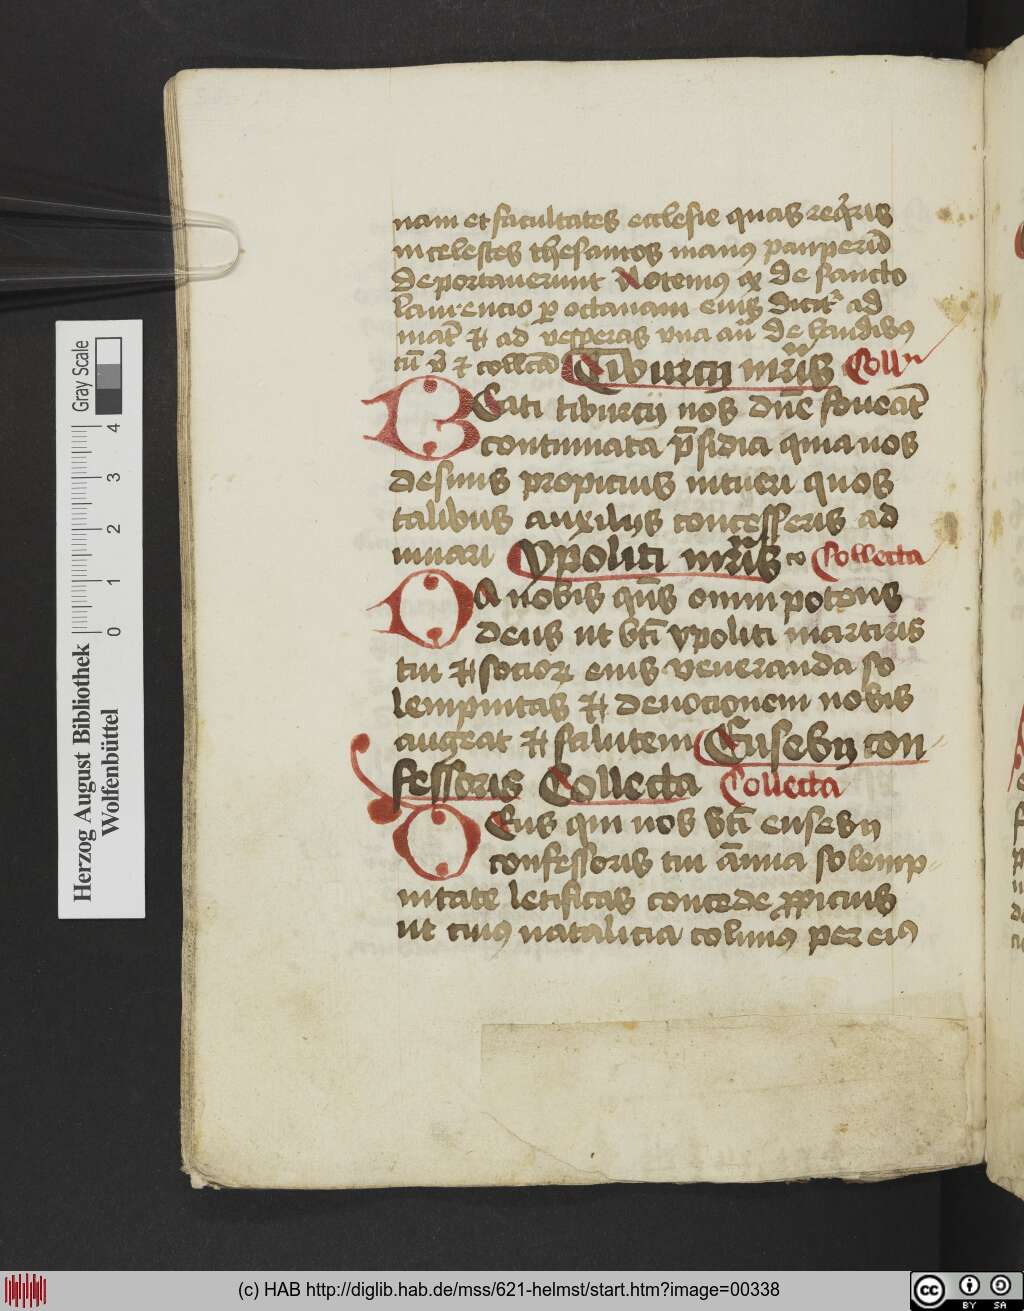 nam et facultates ecclesie quas req̄ris
in celestes thesauros manꝯ pauperū
deportauerunt Notemꝯ ꝙ de sancto
laurencio ꝑ octauam eius dicit᷑ ad
mat᷑ ⁊ ad vesperas vna an̄ de laudibꝯ
cū v̄ ⁊ collcā Tiburcij mr̄is Colla
Beati tiburcij nos dn̄e foueāt
continuata p̄sidia quia nos
desinis propicius intueri quos
talibus auxilijs concesseris ad
iuuari ypoliti mr̄is co Collecta
DA nobis qūs omnipotens
deus ut bt̄i ypoliti martiris
tui ⁊ socioꝝ eius veneranda so
lempnitas ⁊ deuocionem nobis
augeat ⁊ salutem Eusebij con-
fessoris Collecta Collecta
DEus qui nos bt̄i eusebij
confessoris tui ān̄ua solemp-
nitate letificas concede ꝓpicius
ut cuiꝯ natalicia colimꝯ per eiꝯ
Herzog August Bibliothek
Wolfenbüttel
0 1 2 3 4
Gray Scale
(c) HAB http://diglib.hab.de/mss/621-helmst/start.htm?image=00338
cc BY SA